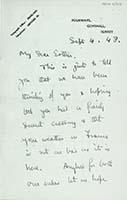 Sept 4. 48.
My Dear
This is just to tell
you that we have been
thinking of you & hoping
you had a fairly
decent crossing & that
your weather in France
is not as bad as it is
here. Anyhow for both
our sakes let us hope